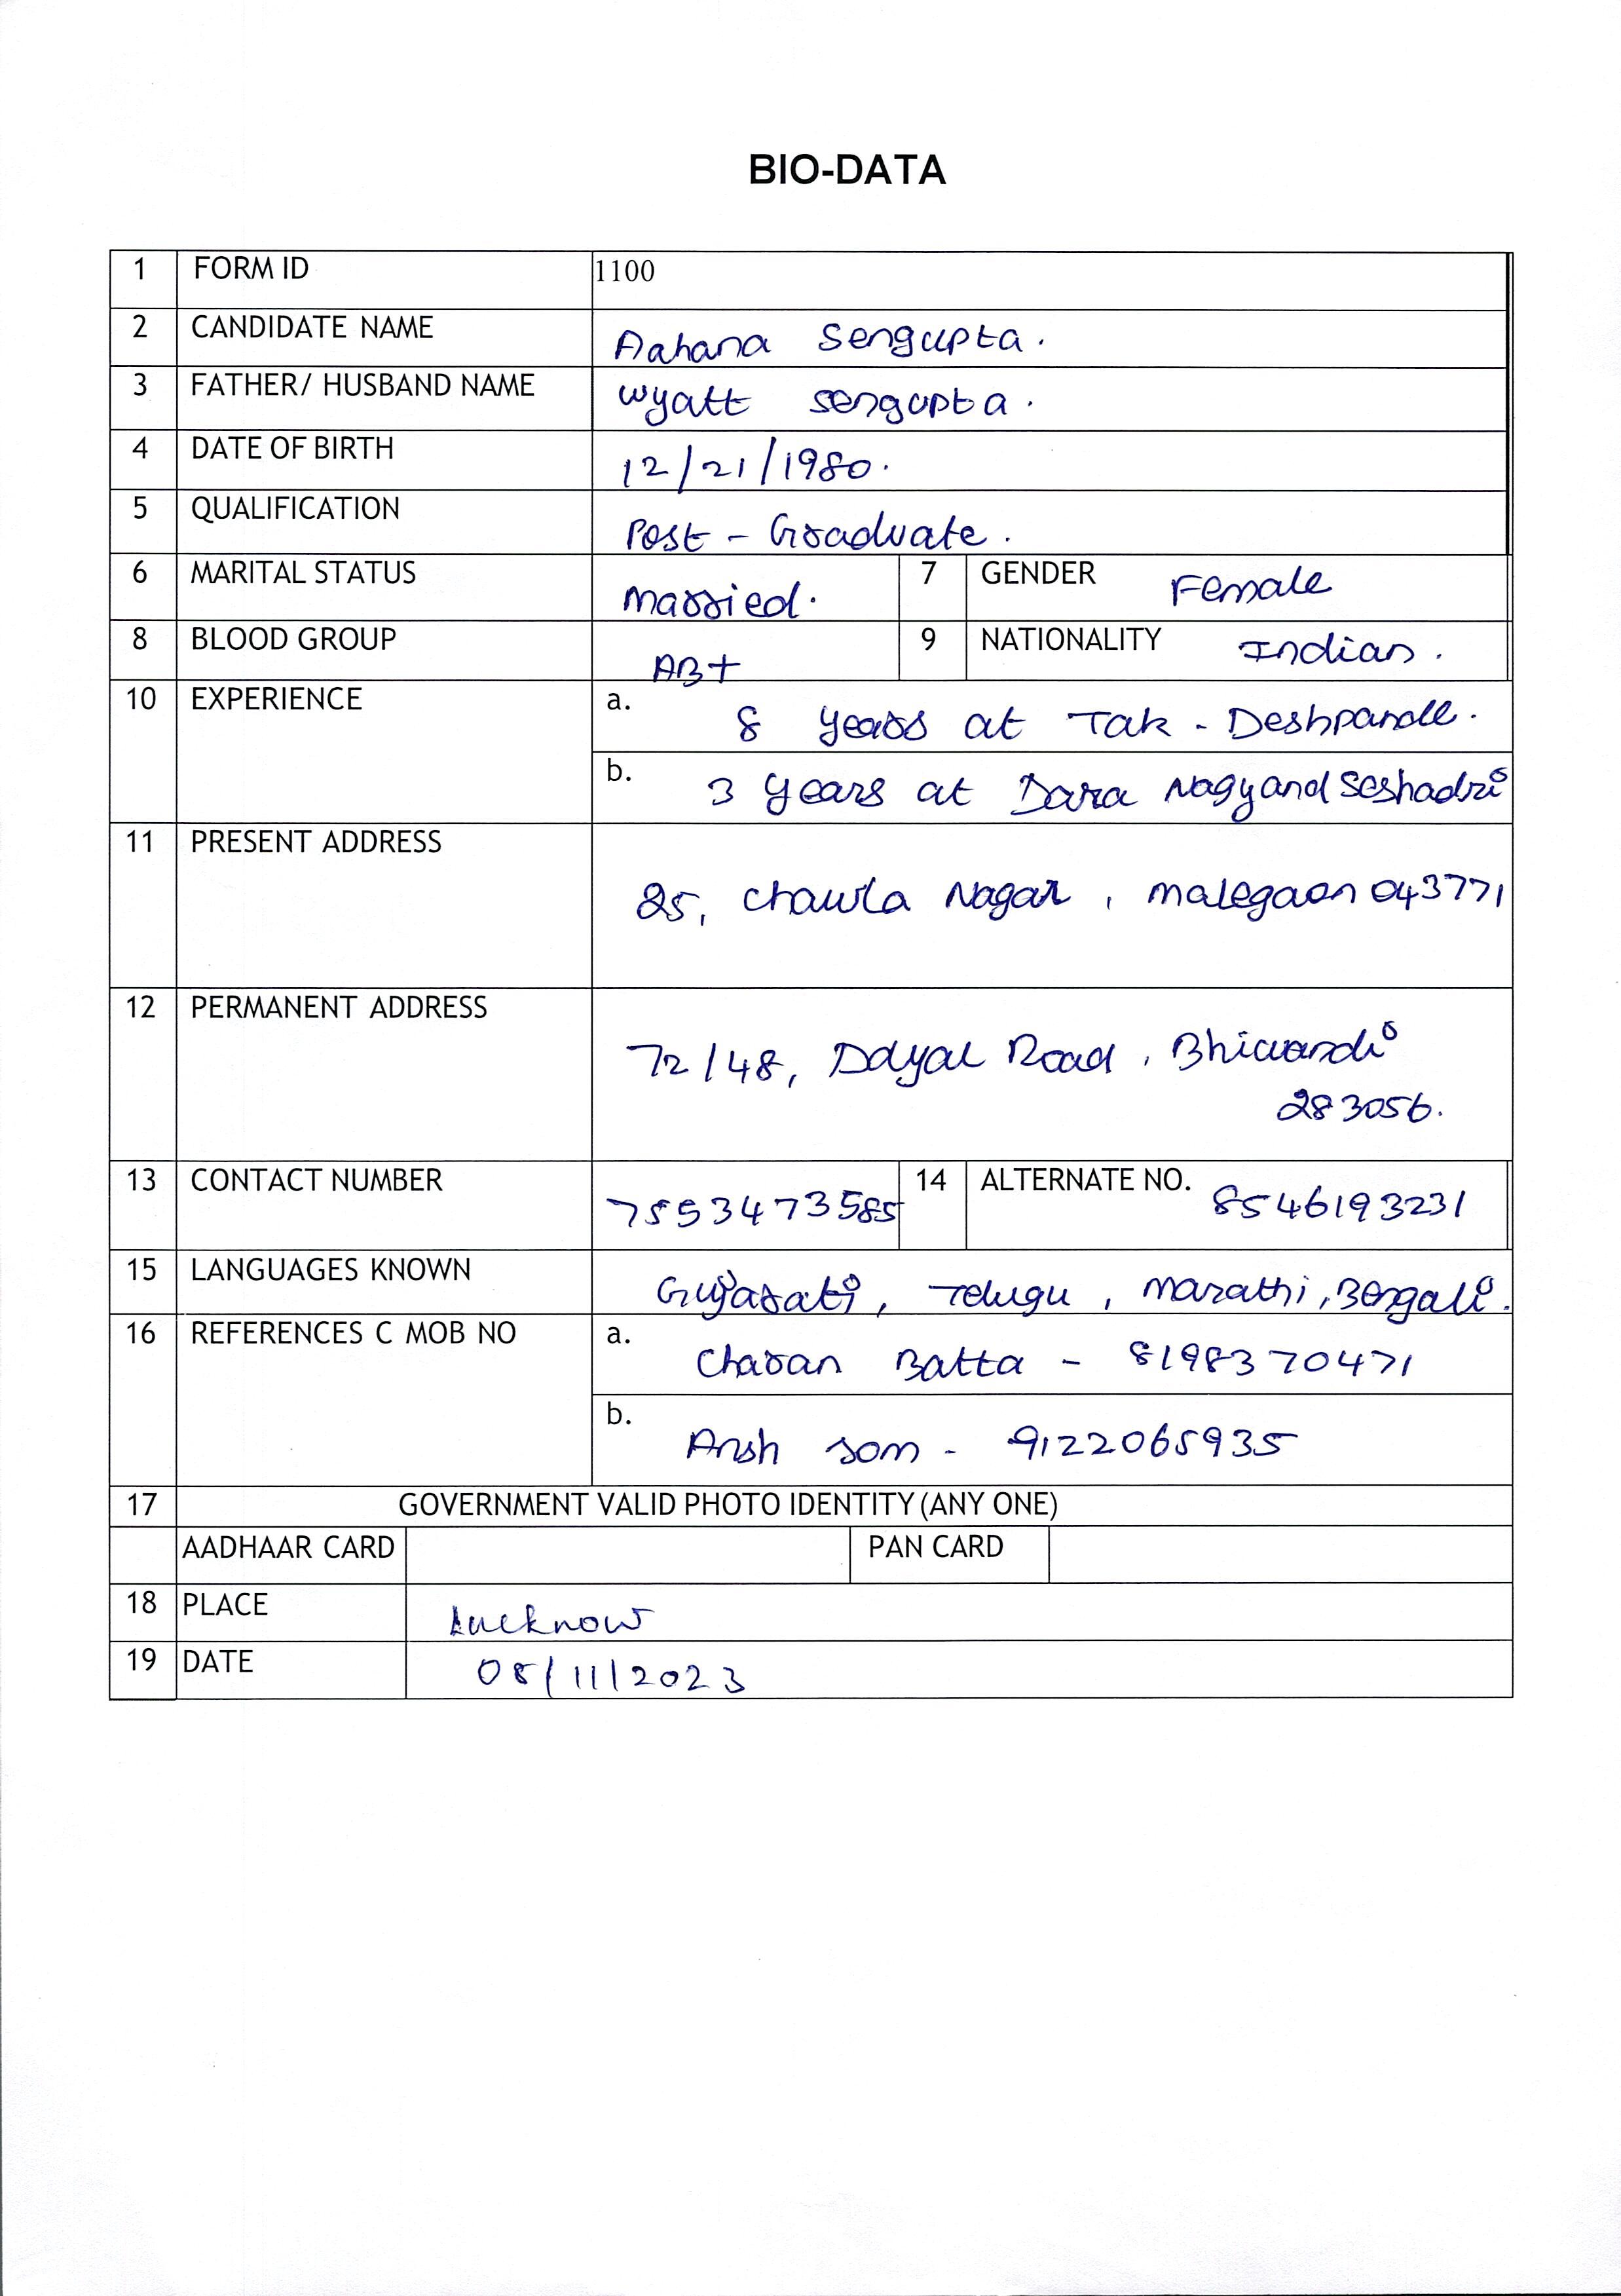 BIO-DATA
1 FORM ID 1100
2 CANDIDATE NAME Aahana Sengupta.
3 FATHER/ HUSBAND NAME Wyatt Sengupta.
4 DATE OF BIRTH 12/21/1980.
5 QUALIFICATION Post - Graduate.
6 MARITAL STATUS Married. 7 GENDER Female
8 BLOOD GROUP AB+ 9 NATIONALITY Indian.
10 EXPERIENCE a. 8 years at Tak - Deshpande.
b. 3 years at Dara Nagy and Seshadri
11 PRESENT ADDRESS
25, Chawla Nagar, Malegaon 043771
12 PERMANENT ADDRESS
72/48, Dayal Road, Bhiwandi
283056.
13 CONTACT NUMBER 7553473585 14 ALTERNATE NO. 8546193231
15 LANGUAGES KNOWN Gujarati, Telugu, Marathi, Bengali.
16 REFERENCES C MOB NO a. Charan Batta - 8198370471
b. Ansh Som - 9122065935
17 GOVERNMENT VALID PHOTO IDENTITY (ANY ONE)
AADHAAR CARD PAN CARD
18 PLACE Lucknow
19 DATE 08/11/2023